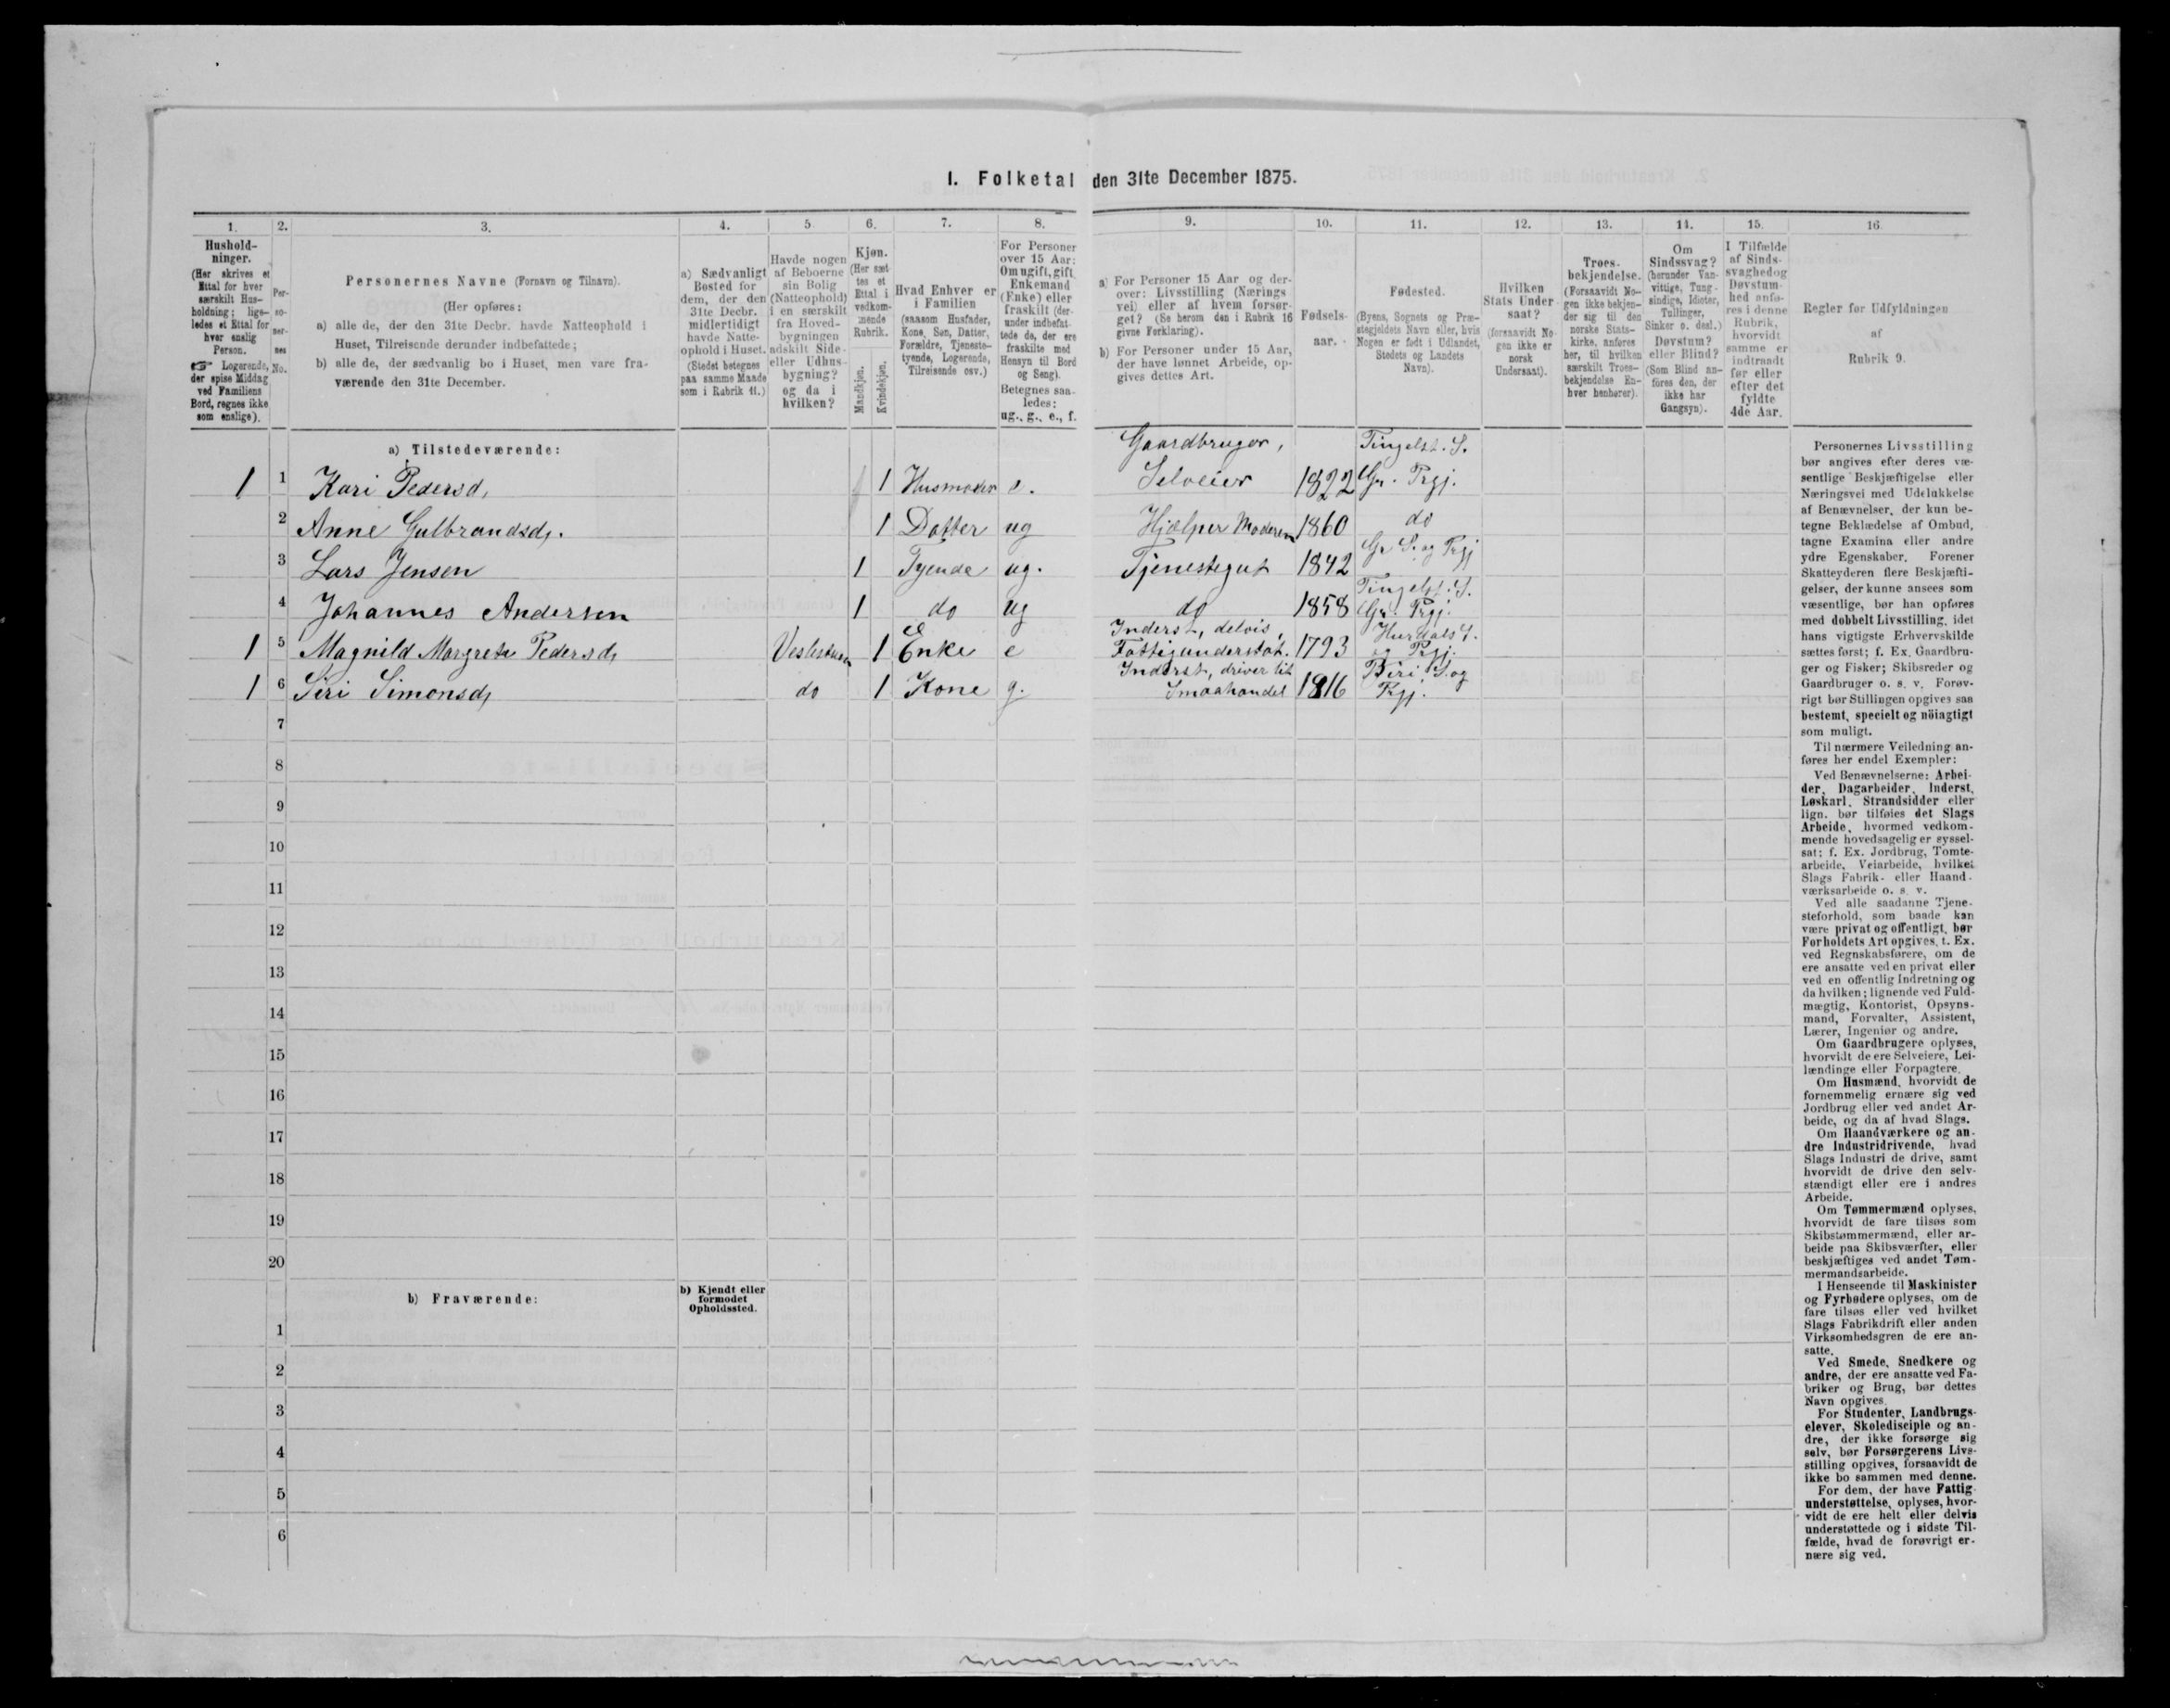 1. Folketal den 31te December 1875.
1.
2.
3.
4.
5
6.
7.
8.
9.
10.
11.
12.
13.
14.
15.
16.
Hushold-
ninger.
(Her skrives et
Ettal for hver
særskilt Hus-
holdning; lige-
ledes et Ettal for
hver enslig
Person.
☞ Logerende,
der spise Middag
ved Familiens
Bord, regnes ikke
som enslige).
Per-
so-
ner-
nes
No.
Personernes Navne (Fornavn og Tilnavn).
(Her opføres:
a) alle de, der den 31te Decbr. havde Natteophold i
Huset, Tilreisende derunder indbefattede;
b) alle de, der sædvanlig bo i Huset, men vare fra-
værende den 31te December.
a) Sædvanligt
Bosted for
dem, der den
31te Decbr.
midlertidigt
havde Natte-
ophold i Huset.
(Stedet betegnes
paa samme Maade
som i Rubrik 11.)
Havde nogen
af Beboerne
sin Bolig
(Natteophold)
i en særskilt
fra Hoved-
bygningen
adskilt Side-
eller Udhus-
bygning?
og da i
hvilken?
Kjøn.
(Her sæt-
tes et
Ettal i
vedkom-
mende
Rubrik.
Mandkjøn.
Kvindekjøn.
Hvad Enhver er
i Familien
(saasom Husfader,
Kone, Søn, Datter,
Forældre, Tjeneste-
tyende, Logerende,
Tilreisende osv.)
For Personer
over 15 Aar:
Om ugift, gift,
Enkemand
(Enke) eller
fraskilt (der-
under indbefat-
tede de, der ere
fraskilte med
Hensyn til Bord
og Seng).
Betegnes saa-
ledes:
ug., g., e., f.
a) For Personer 15 Aar og der-
over: Livsstilling (Nærings
vei) eller af hvem forsør-
get? (Se herom den i Rubrik 16
givne Forklaring).
b) For Personer under 15 Aar,
der have lønnet Arbeide, op-
gives dettes Art.
Fødsels-
aar.
Fødested.
(Byens, Sognets og Præ-
stegjeldets Navn eller, hvis
Nogen er født i Udlandet,
Stedets og Landets
Navn).
Hvilken
Stats Under-
saat?
(forsaavidt No-
gen ikke er
norsk
Undersaat).
Troes-
bekjendelse.
(Forsaavidt No-
gen ikke bekjen-
der sig til den
norske Stats-
kirke, anføres
her, til hvilken
særskilt Troes-
bekjendelse En-
hver henhører).
Om
Sindssvag?
(herunder Van-
vittige, Tung-
sindige, Idioter,
Tullinger,
Sinker o. desl.)
Døvstum?
eller Blind?
(Som Blind an-
føres den, der
ikke har
Gangsyn).
I Tilfælde
af Sinds-
svaghed og
Døvstum-
hed anfø-
res i denne
Rubrik,
hvorvidt
samme er
indtraadt
før eller
efter det
fyldte
4de Aar.
Regler for Udfyldningen
af
Rubrik 9.
a) Tilstedeværende:
Gaardbruger, Tingelst. S.
1 1 Kari Pedersd, 1 Husmoder e. Selveier 1822 Gr. Prgj.
2 Anne Gulbrandsd,. 1 Datter ug Hjælper Moderen 1860 do
3 Lars Jensen 1 Tyende ug. Tjenestegut 1842 Gr S. og Prgj
Tingelst. S.
4 Johannes Andersen 1 do ug do 1858 Gr. Prgj.
Inderst, delvis, Hurdals S.
1 5 Magnild Margrete Pedersd, Veslestuen 1 Enke e Fattigunderstøt. 1793 og Prgj.
Inderst, driver lit Biri S. og
1 6 Siri Simonsd, do 1 Kone g. Smaahandel 1816 Prgj.
7
8
9
10
11
12
13
14
15
16
17
18
19
20
b) Fraværende:
b) Kjendt eller
formodet
Opholdssted.
1
2
3
4
5
6
Personernes Livsstilling
bør angives efter deres væ-
sentlige Beskjæftigelse eller
Næringsvei med Udelukkelse
af Benævnelser, der kun be-
tegne Beklædelse af Ombud,
tagne Examina eller andre
ydre Egenskaber. Forener
Skatteyderen flere Beskjæfti-
gelser, der kunne ansees som
væsentlige, bør han opføres
med dobbelt Livsstilling, idet
hans vigtigste Erhvervskilde
sættes først; f. Ex. Gaardbru-
ger og Fisker; Skibsreder og
Gaardbruger o. s. v. Forøv-
rigt bør Stillingen opgives saa
bestemt, specielt og nöiagtigt
som muligt.
Til nærmere Veiledning an-
føres her endel Exempler:
Ved Benævnelserne: Arbei-
der, Dagarbeider, Inderst,
Løskarl, Strandsidder eller
lign. bør tilføies det Slags
Arbeide, hvormed vedkom-
mende hovedsagelig er syssel-
sat; f. Ex. Jordbrug, Tomte-
arbeide, Veiarbeide, hvilket
Slags Fabrik- eller Haand-
værksarbeide o. s. v.
Ved alle saadanne Tjene-
steforhold, som baade kan
være privat og offentligt, bør
Forholdets Art opgives, t. Ex.
ved Regnskabsførere, om de
ere ansatte ved en privat eller
ved en offentlig Indretning og
da hvilken; lignende ved Fuld-
mægtig, Kontorist, Opsyns-
mand, Forvalter, Assistent,
Lærer, Ingeniør og andre.
Om Gaardbrugere oplyses,
hvorvidt de ere Selveiere, Lei-
lændinge eller Forpagtere.
Om Husmænd, hvorvidt de
fornemmelig ernære sig ved
Jordbrug eller ved andet Ar-
beide, og da af hvad Slags.
Om Haandværkere og an-
dre Industridrivende, hvad
Slags Industri de drive, samt
hvorvidt de drive den selv-
stændigt eller ere i andres
Arbeide.
Om Tømmermænd oplyses,
hvorvidt de fare tilsøs som
Skibstømmermænd, eller ar-
beide paa Skibsværfter, eller
beskjæftiges ved andet Tøm-
mermandsarbeide.
I Henseende til Maskinister
og Fyrbødere oplyses, om de
fare tilsøs eller ved hvilket
Slags Fabrikdrift eller anden
Virksomhedsgren de ere an-
satte.
Ved Smede, Snedkere og
andre, der ere ansatte ved Fa-
briker og Brug, bør dettes
Navn opgives.
For Studenter, Landbrugs-
elever, Skoledisciple og an-
dre, der ikke forsørge sig
selv, bør Forsørgerens Livs-
stilling opgives, forsaavidt de
ikke bo sammen med denne.
For dem, der have Fattig-
understøttelse, oplyses, hvor-
vidt de ere helt eller delvis
understøttede og i sidste Til-
fælde, hvad de forøvrigt er-
nære sig ved.